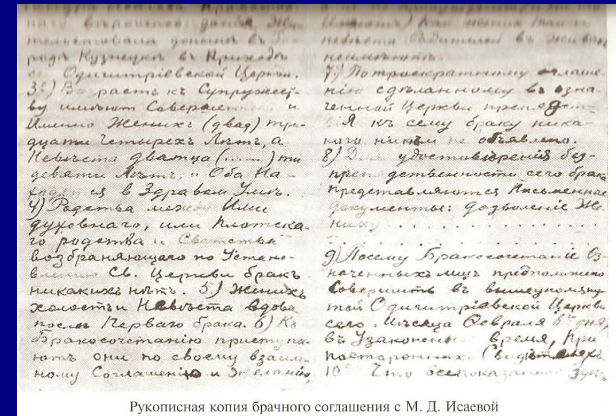 тельствовала доныне въ
родъ Кузнецкъ въ Приходѣ
Одигитріевской Церкви.
3е) Возрастъ къ Супружест-
ву имѣютъ Совершенный и
Именно Женихъ (двад) три-
дцати Четырехъ Лѣтъ, а
Невѣста двадца (......) ти
девяти Лѣтъ, и Оба На-
ходятся в Здравом Умѣ.
4) Родства между Ими
духовнаго, или Плотска-
го родства и Сватства
возбраняющаго по Устано-
вленію Св. Церкви бракъ
никакихъ нѣтъ. 5) Женихъ
холостъ и Невѣста вдова
послѣ Перваго брака. 6) Къ
Бракосочетанію приступа-
ютъ они по своему взаим-
ному Соглашенію и Желанію
неимѣютъ.
7) По троекратному оглаше-
нію сдѣланному въ озна-
ченной Церкви препядст-
вія къ сему браку ника-
кого никѣм не объявлено.
8) Для удостовѣренія без-
препядственности сего брака
представляются Письменные
документы: дозволеніе Же-
ниху . . . . . . . . .
9) Посему Бракосочетаніе Оз-
наченныхъ лицъ предположено
Совершить въ вышеупомяну-
той Одигитріевской Церкви
сего Мѣсяца Февраля 6го дня,
въ Узаконенное время, При
постороннихъ Свидѣтеляхъ
10е Что все показанное
Рукописная копия брачного соглашения с М. Д. Исаевой